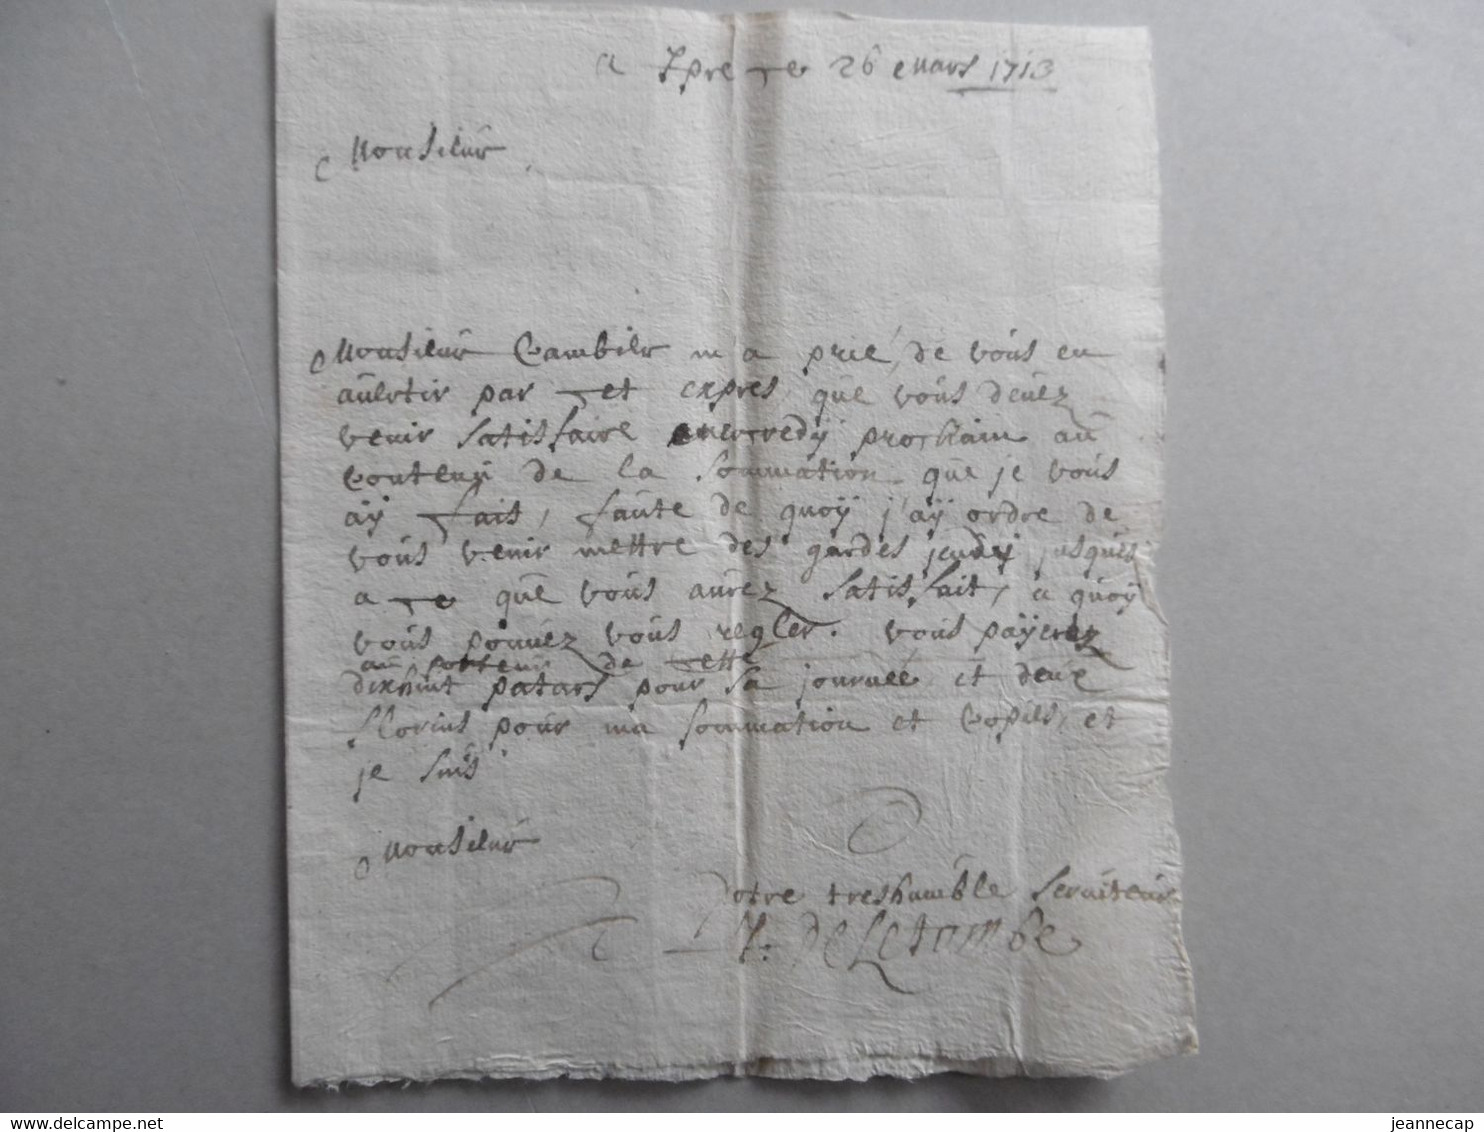 a Ipre ce 26 Mars 1713
Monsieur
Monsieur Cambier m'a prié, de vous en
auertir par cet exprés, que vous deuez
venir satisfaire mercredÿ prochain au
Contenu de la sommation que je vous
aÿ fait, faute de quoÿ j'aÿ ordre de
vous venir mettre des gardes jeudÿ jusques
a ce que vous aurez satisfait, a quoÿ
vous pouuez vous regler. vous paÿerez
au porteur de cette
dixhuit patars pour sa journée et deux
florins pour ma sommation et Copies, et
je suis
Monsieur
Votre treshumble seruiteur
De Letombe
jeannecap